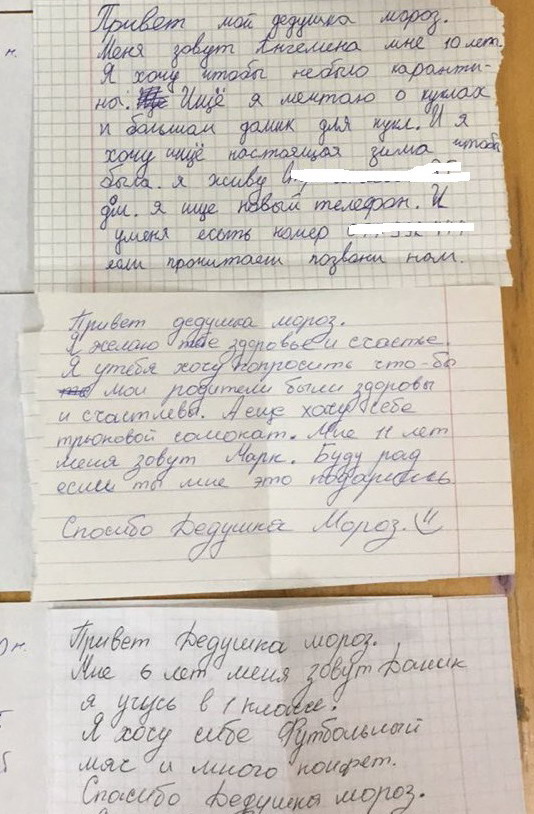 Привет мой дедушка мороз.
Меня зовут Ангелина мне 10 лет.
Я хочу чтобы небыло каранти-
на. Ищё я мечтаю о куклах
и большом домик для кукл. И я
хочу ищё настоящая зима чтобы
была. я живу
дом. я ище новый телефон. И
уменя есать номер
если прочитаеш позвони нам.
Привет дедушка мороз.
Я желаю тебе здоровье и счастье.
Я утебя хочу попросить что-бы
мои родители были здоровы
и счастлевы. А еще хочу себе
трюковой самокат. Мне 11 лет
меня зовут Марк. Буду рад
если ты мне это подаришь
Спасибо Дедушка Мороз.
Привет Дедушка мороз.
Мне 6 лет меня зовут Даник
я учусь в 1 классе.
Я хочу себе Футбольный
мяч и много конфет.
Спосибо Дедушка мороз.